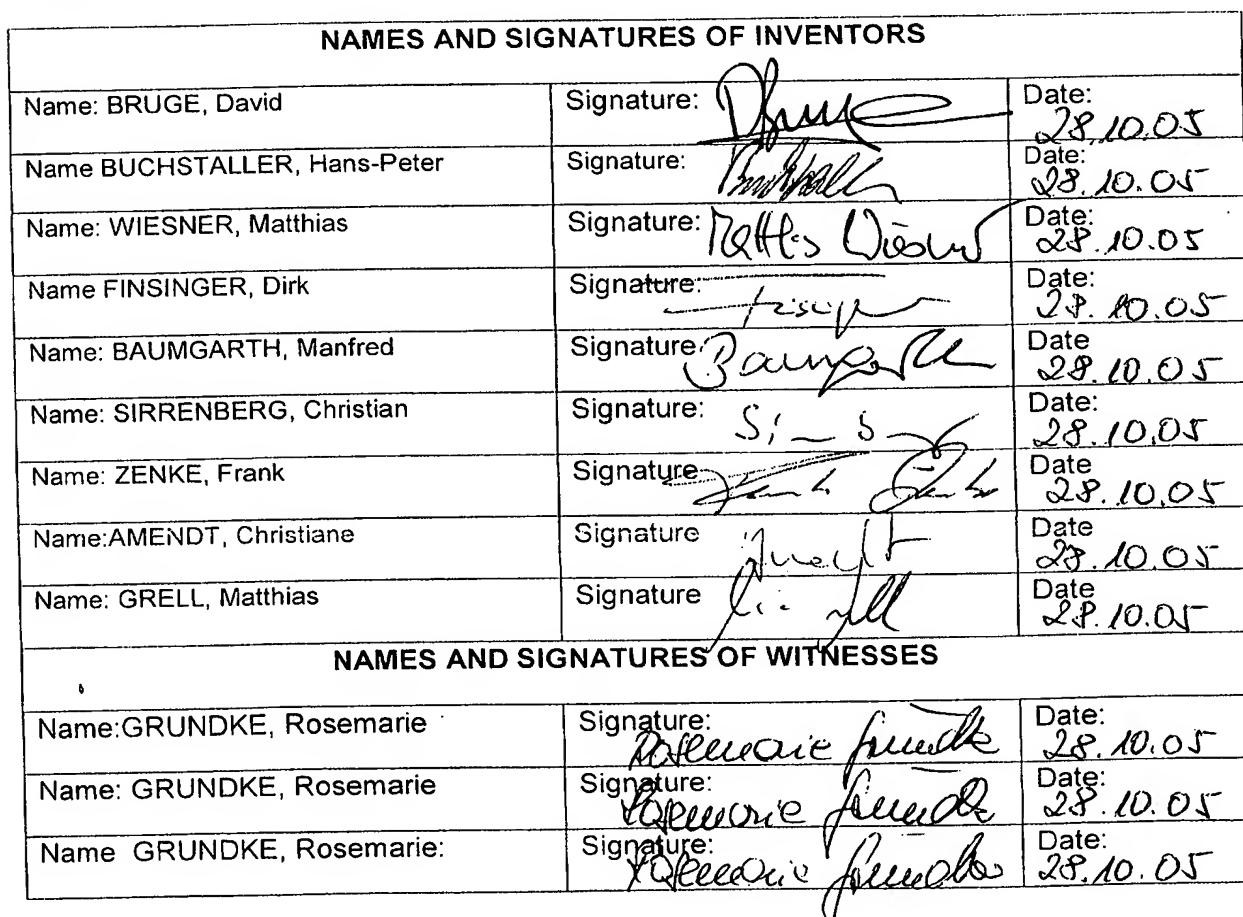 NAMES AND SIGNATURES OF INVENTORS
Name: BRUGE, David Signature: Date: 28.10.05
Name BUCHSTALLER, Hans-Peter Signature: Date: 28.10.05
Name: WIESNER, Matthias Signature: Date: 28.10.05
Name FINSINGER, Dirk Signature: Date: 28.10.05
Name: BAUMGARTH, Manfred Signature Baumgarth Date 28.10.05
Name: SIRRENBERG, Christian Signature: Date: 28.10.05
Name: ZENKE, Frank Signature Date 28.10.05
Name:AMENDT, Christiane Signature Date 28.10.05
Name: GRELL, Matthias Signature Date 28.10.05
NAMES AND SIGNATURES OF WITNESSES
Name:GRUNDKE, Rosemarie Signature: Rosemarie Grundke Date: 28.10.05
Name: GRUNDKE, Rosemarie Signature: Rosemarie Grundke Date: 28.10.05
Name GRUNDKE, Rosemarie: Signature: Rosemarie Grundke Date: 28.10.05